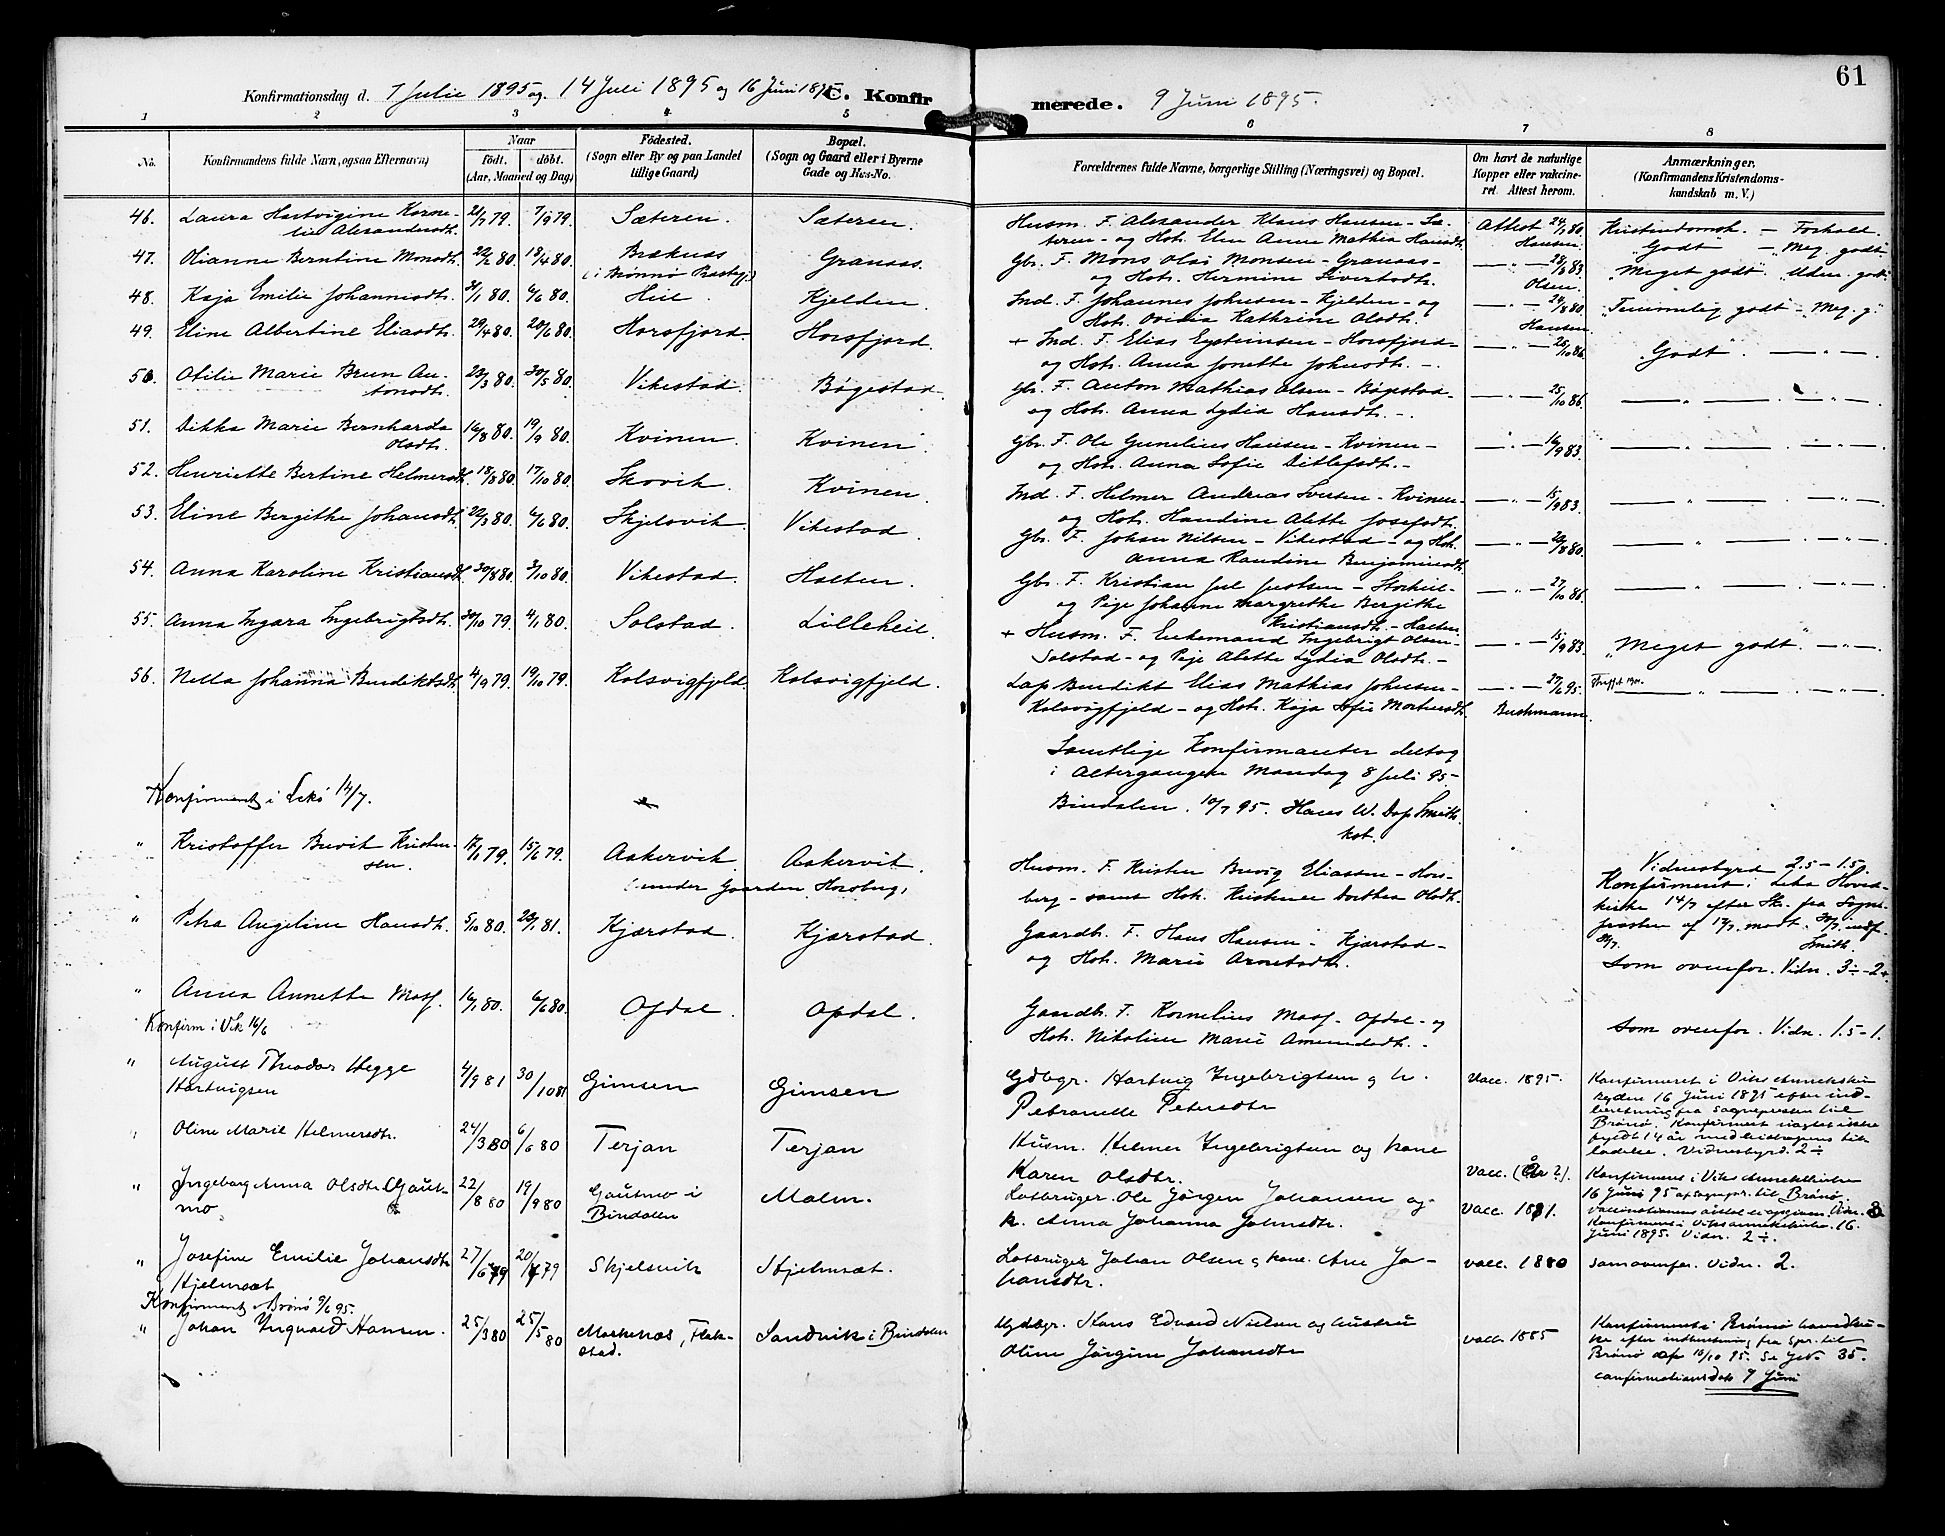 61
Konfirmationsdag d. 7 Julie 1895 og 14 Juli 1895 og 16 Juni 1895 C. Konfirmerede. 9 Juni 1895.
1 2 3 4 5 6 7 8
No. Konfirmandens fulde Navn, ogsaa Efternavn) Naar født. døbt. (Aar, Maaned og Dag) Fødested. (Sogn eller By og paa Landet tillige Gaard) Bopæl. (Sogn og Gaard eller i Byerne Gade og Hus-No. Forældrenes fulde Navne, borgerlige Stilling (Næringsvei) og Bopæl. Om havt de naturlige Kopper eller vakcineret. Attest herom. Anmærkninger, (Konfirmandens Kristendomskundskab m. V.)
46. Laura Hartvigine Korne- 21/7 79. 7/9 79. Sæteren. Sæteren. Husm. F. Alexander Klaus Hansen - Sæ- Attest 24/ 80 Kristendomsk. - Forhold.
lia Alexandersdt. teren - og Hst. Elen Anna Mathea Hansdt. Hansen. "Godt" - "Meg. godt"
47. Olianne Berntine Monsdt. 22/2 80. 18/4 80. Bræknæs Granaas. Gbr. F. Mons Olai Monsen - Granaas - — " — 28/8 83. "Meget godt". Uden. godt
(i Brønnø Præstegj.) og Hst. Hermine Sivertsdt. Olsen.
48. Kaja Emilie Johannesdt. 31/1 80. 6/6 80. Heil. Kjelden. Ind. F. Johannes Johnsen - Kjelden - og — " — 24/8 80. "Temmelig godt - Meg. g."
Hst. Ovidia Kathrine Olsdt. Hansen.
49. Eline Albertine Eliasdt. 29/4 80. 20/6 80. Horsfjord. Horsfjord. + Ind. F. Elias Eysteinsen - Horsfjord - — " — 25/10 86. "Godt". — " —
og Hst. Anna Jonette Johnsdt. -.
50. Otilie Marie Brun An- 23/3 80. 30/5 80. Vikestad. Bøgestad. Gbr. F. Anton Mathias Olsen - Bøgestad - — " — 25/10 86. — " — — " —
tonsdt. og Hst. Anna Lydia Hansdt. -.
51. Dikka Marie Bernharda 16/8 80. 19/9 80. Kvinen. Kvinen. Gbr. F. Ole Gunelius Hansen - Kvinen - — " — 16/9 83. — " — — " —
Olsdt. og Hst. Anna Sofie Ditlefsdt. -
52. Henriette Bertine Helmersdt. 18/8 80. 17/10 80. Skovik. Kvinen. Ind. F. Helmer Andreas Iversen - Kvinen - — " — 15/9 83. — " — — " —
og Hst. Haudine Alette Josefsdt.
53. Eline Bergithe Johansdt. 22/3 80. 6/6 80. Skjelsvik. Vikestad. Gbr. F. Johan Nilsen - Vikestad - og Hst. — " — 22/8 80. — " — — " —
Anna Randine Benjaminsdt.
54. Anna Karoline Kristiansdt. 30/8 80. 3/10 80. Vikestad. Halten. Gbr. F. Kristian Jul Justsen - Storheil - — " — 27/10 86. — " — — " —
og Pige Johanne Margrethe Bergithe
Kristiansdt. - Halten.
55. Anna Ingara Ingebrigtsdt. 30/10 79. 4/1 80. Solstad. Lilleheil. + Husm. F. Enkemand Ingebrigt Olsen - — " — 15/9 83. "Meget godt". — " —
Solstad - og Pige Alette Lydia Olsdt. -
56. Nella Johanna Bendiktsdt. 4/9 79. 19/10 79. Kolsvigfjeld. Kolsvigfjeld. Lap Bendikt Elias Mathias Johnsen - — " — 27/6 95. — " — — " —
Kolsvigfjeld - og Hst. Kaja Sofie Mortensdt. Buchmann.
Samtlige Konfirmanter deltog
i Altergangen Mandag 8 Juli 95 -
Bindalen. 10/7 95. Hans W. Dop Smith.
kst.
Konfirment i Lekø 14/7.
" Kristoffer Buvik Kristen- 17/1 79. 15/6 79. Aakervik. Aakervik. Husm. F. Kristen Buvig Eliassen - Hors- Vidnesbyrd 2.5 - 1.5.
sen. (under Gaarden Horsberg) berg - samt Hst. Kristense Dorthea Olsdt. Konfirment i Leka Hoved-
kirke 14/7 efter Sk. fra Sogne-
" Petra Angeline Hansdt. 5/10 80. 23/1 81. Kjærstad. Kjærstad. Gaardb. F. Hans Hansen - Kjærstad - præsten af 17/7. modt. 30/7. indf.
og Hst. Marie Arnetsdt. Smith.
Som ovenfor. Vidn. 3÷ - 2÷
" Anna Annette Mass. 16/1 80. 6/6 80. Opdal. Opdal. Gaardb. F. Kornelius Mass - Opdal - og Som ovenfor. Vidn. 1.5 - 1.
Hst. Nikoline Marie Amundsdt. -
Konfirm i Vik 16/6
" August Theodor Hegge 4/9 81 30/10 81 Gimsen Gimsen Gdbgr. Hartvig Ingebrigtsen og h. Vacc. 1895. Konfirmeret i Viks Annekskir
Hartvigsen Petronelle Petersdtr ke den 16 Juni 1895 efter ind-
beretning fra sognepresten til
Brønø. Konfirment uagtet ikke
" Oline Marie Helmersdtr. 24/3 80 6/6 80 Terjan Terjan Husm. Helmer Ingebrigtsen og kone fyldt 14 år med bidragens til-
Karen Olsdtr. Vacc. (År ?). ladelse. Vidnesbyrd. 2÷
" Ingeborg Anna Olsdtr Gaut- 22/8 80 19/9 80 Gautmo i Malm. Lotbruger. Ole Jørgen Johansen og vacc. 1881. Konfirment i Viks Annekskirke
mo Bindalen k. Anna Johanna Johnsdtr. 16 Juni 95 af sognepr. til Brønø.
Konfirment i Viks annekskirke. 16.
Juni 1895. Vidn. 2÷.
" Josefine Emilie Johansdtr 27/6 79 20/7 79 Skjelsvik Hjelmsæt. Lotbruger Johan Olsen og kone Ane Jo- vacc. 1880 som ovenfor. Vidn. 2.
Hjelmsæt hansdtr.
Konfirment Brønø 9/6 95.
" Johan Ingvald Hansen. 25/3 80 25/5 80 Moskenes, Flak- Sandvik i Bindalen Gdbgr. Hans Edvard Nielsen og hustru vacc. 1885 Konfirment i Brønnø hovedkir-
stad. Oline Jørgine Johansdtr ke efter indberetning fra spr. til
Brønø af 10/10 95. Se JNo 35.
confirmationsdato 9 Juni